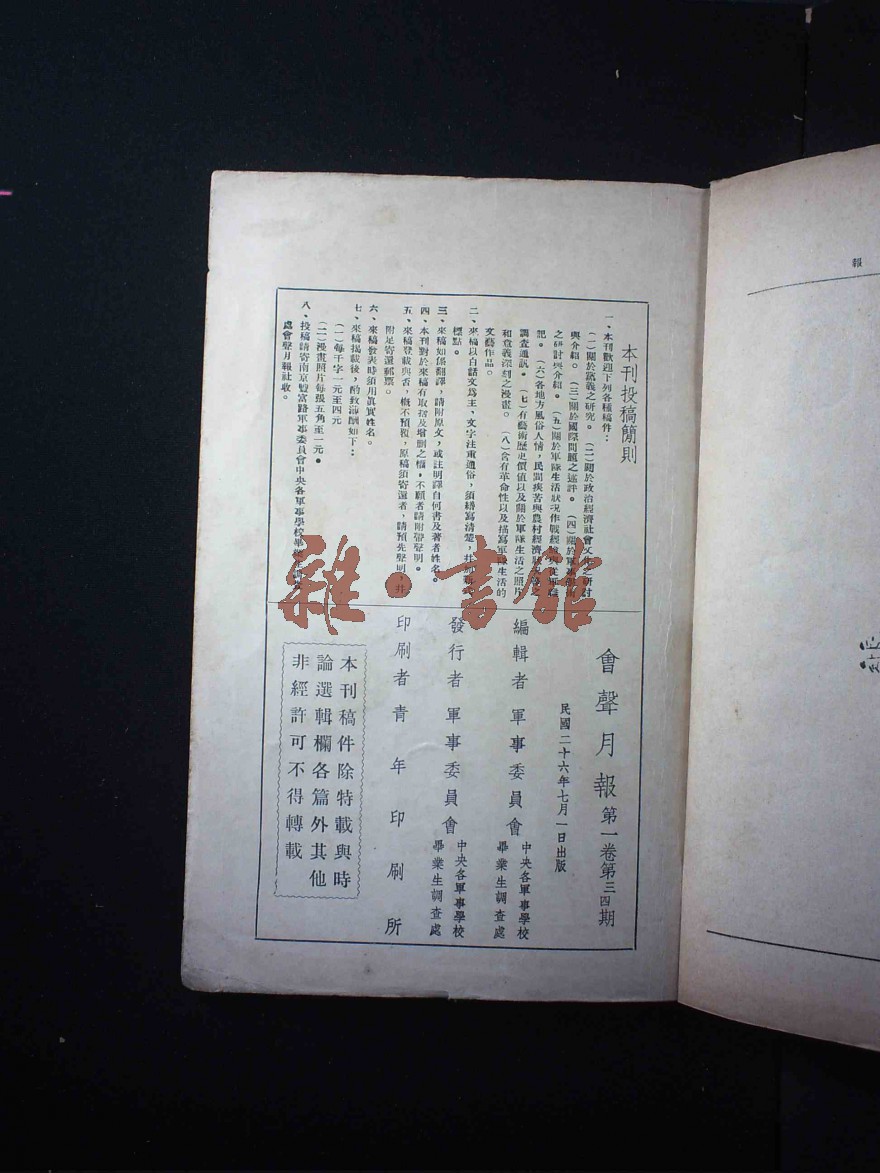 本刊投稿簡則
一、本刊歡迎下列各種稿件：
（一）關於黨義之研究。（二）關於政治經濟社會文化之研討
與介紹。（三）關於國際問題之述評。（四）關於軍事
之研討與介紹。（五）關於軍隊生活狀況作戰經驗與從軍
記。（六）各地方風俗人情，民間疾苦與農村經濟狀況等之
調查通訊。（七）有藝術歷史價值以及關於軍隊生活之照片
和意義深刻之漫畫。（八）含有革命性以及描寫軍隊生活的
文藝作品。
二、來稿以白話文爲主、文字注重通俗，須繕寫清楚，幷加新式
標點。
三、來稿如係翻譯，請附原文，或註明譯自何書及著者姓名。
四、本刊對於來稿有取捨及增删之權。不願者請附帶聲明。
五、來稿登載與否，概不預覆，原稿須寄還者，請預先聲明，幷
附足寄還郵票。
六、來稿發表時須用眞實姓名。
七、來稿揭載後，酌致薄酬如下：
（一）每千字一元至四元
（二）漫畫照片每張五角至一元。
八、投稿請寄南京豐富路軍事委員會中央各軍事學校畢業生調查
處會聲月報社收。
會聲月報 第一卷第三四期
民國二十六年七月一日出版
編輯者 軍事委員會 中央各軍事學校
畢業生調查處
發行者 軍事委員會 中央各軍事學校
畢業生調查處
印刷者 青年印刷所
本刊稿件除特載與時
論選輯欄各篇外其他
非經許可不得轉載
雜·書館
報